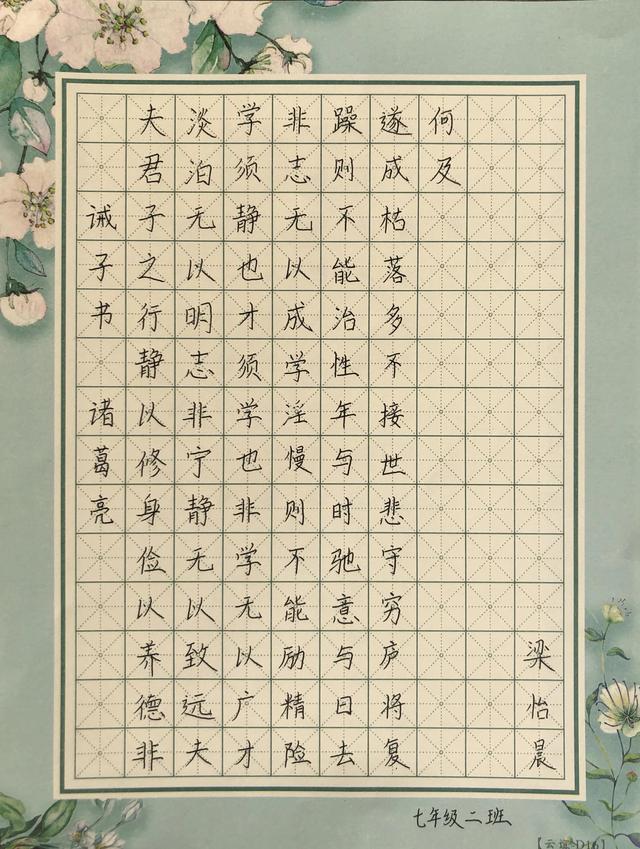 诫子书 诸葛亮
夫君子之行静以修身俭以养德非
淡泊无以明志非宁静无以致远夫
学须静也才须学也非学无以广才
非志无以成学淫慢则不能励精险
躁则不能治性年与时驰意与日去
遂成枯落多不接世悲守穷庐将复
何及
梁怡晨
七年级二班